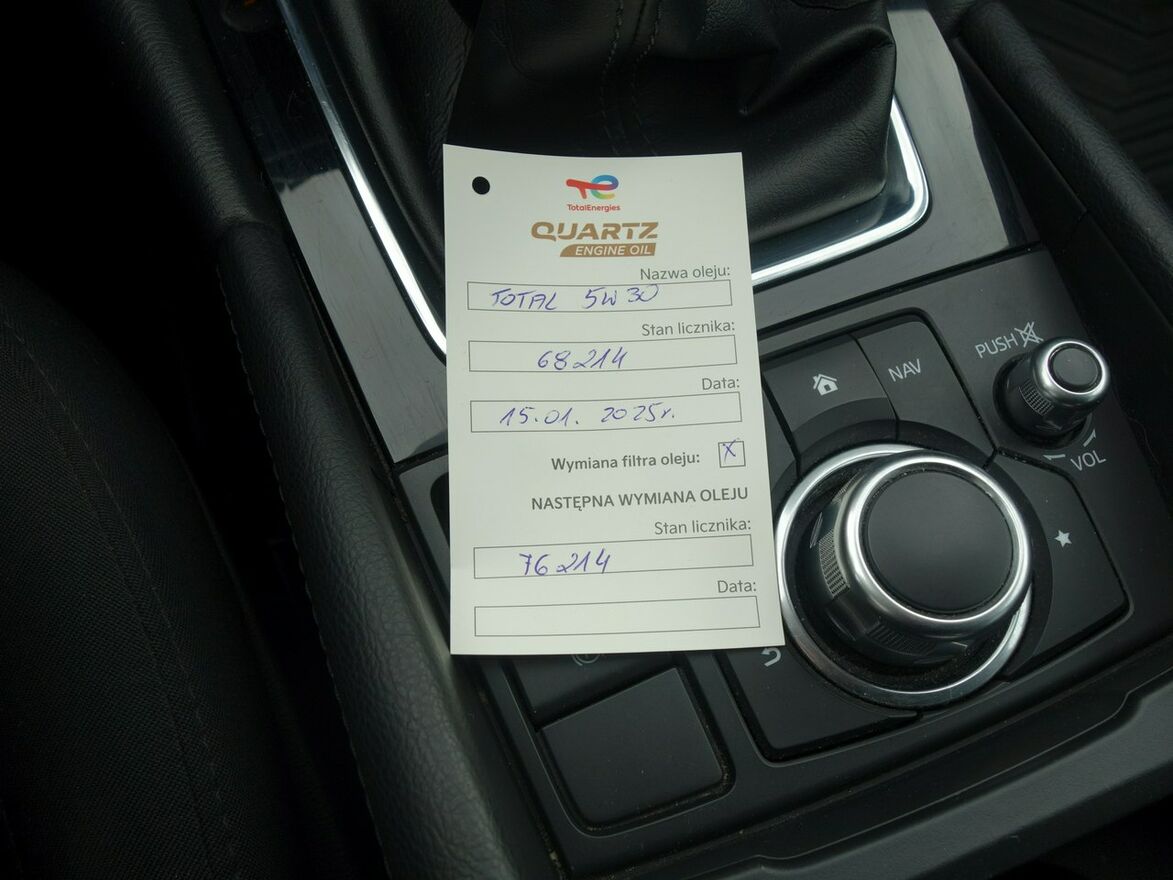 TotalEnergies
QUARTZ
ENGINE OIL
Nazwa oleju:
TOTAL 5W30
Stan licznika:
68214
Data:
15.01. 2025r.
Wymiana filtra oleju: X
NASTĘPNA WYMIANA OLEJU
Stan licznika:
76214
Data:
NAV
PUSH
VOL